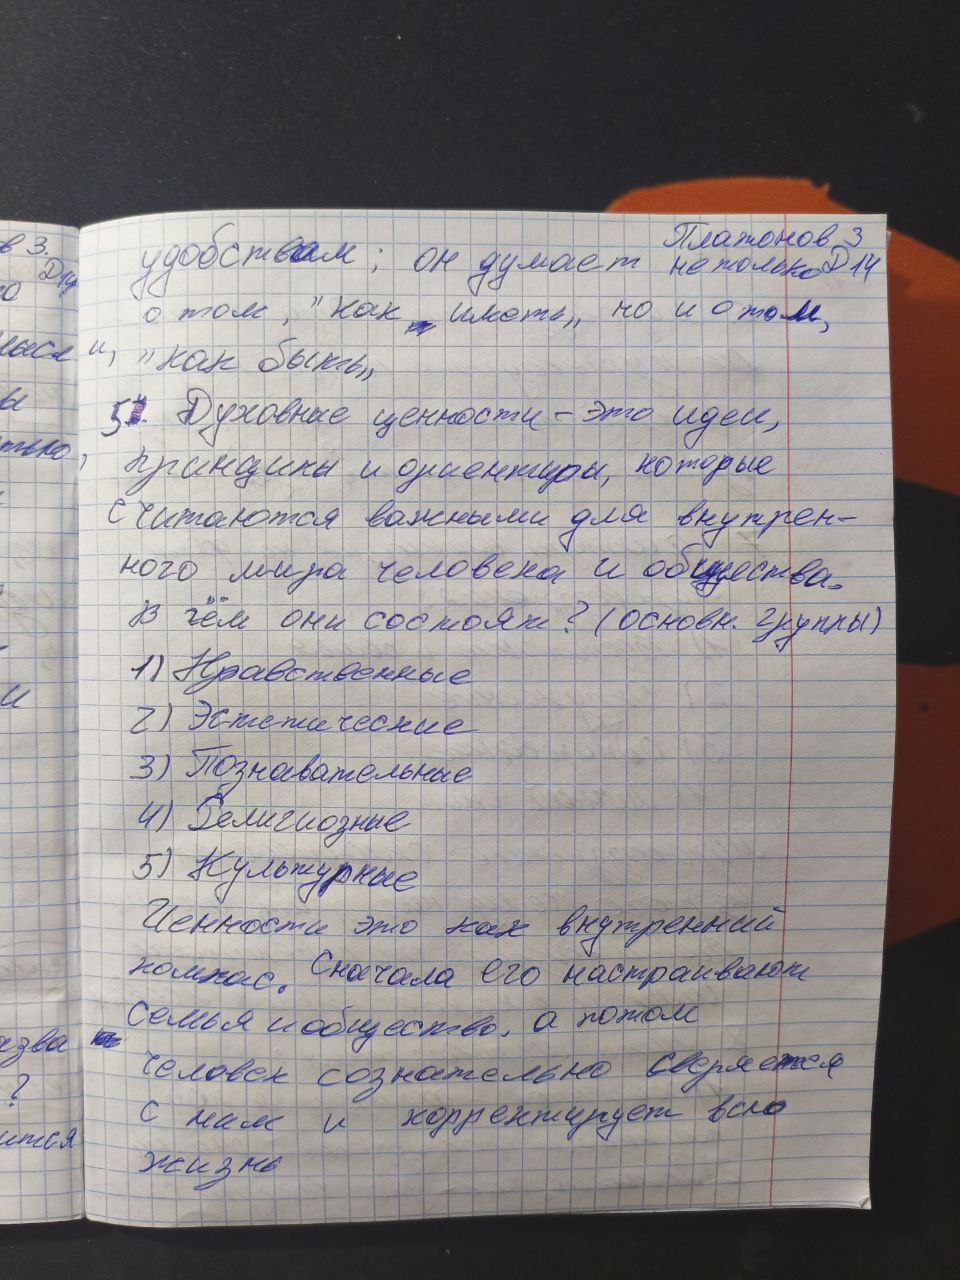 Платонов З
Д14
удобствам; он думает не только
о том, "как иметь,, но и о том,
"как быть,,
5. Духовные ценности - это идеи,
принципы и ориентиры, которые
считаются важными для внутрен-
ного мира человека и общества.
В чём они состоят? (основн. группы)
1) Нравственные
2) Эстетические
3) Познавательные
4) Религиозные
5) Культурные
Ценности это как внутренний
компас. Сначала его настраивают
семья и общество, а потом
человек сознательно сверяется
с ним и корректирует всю
жизнь